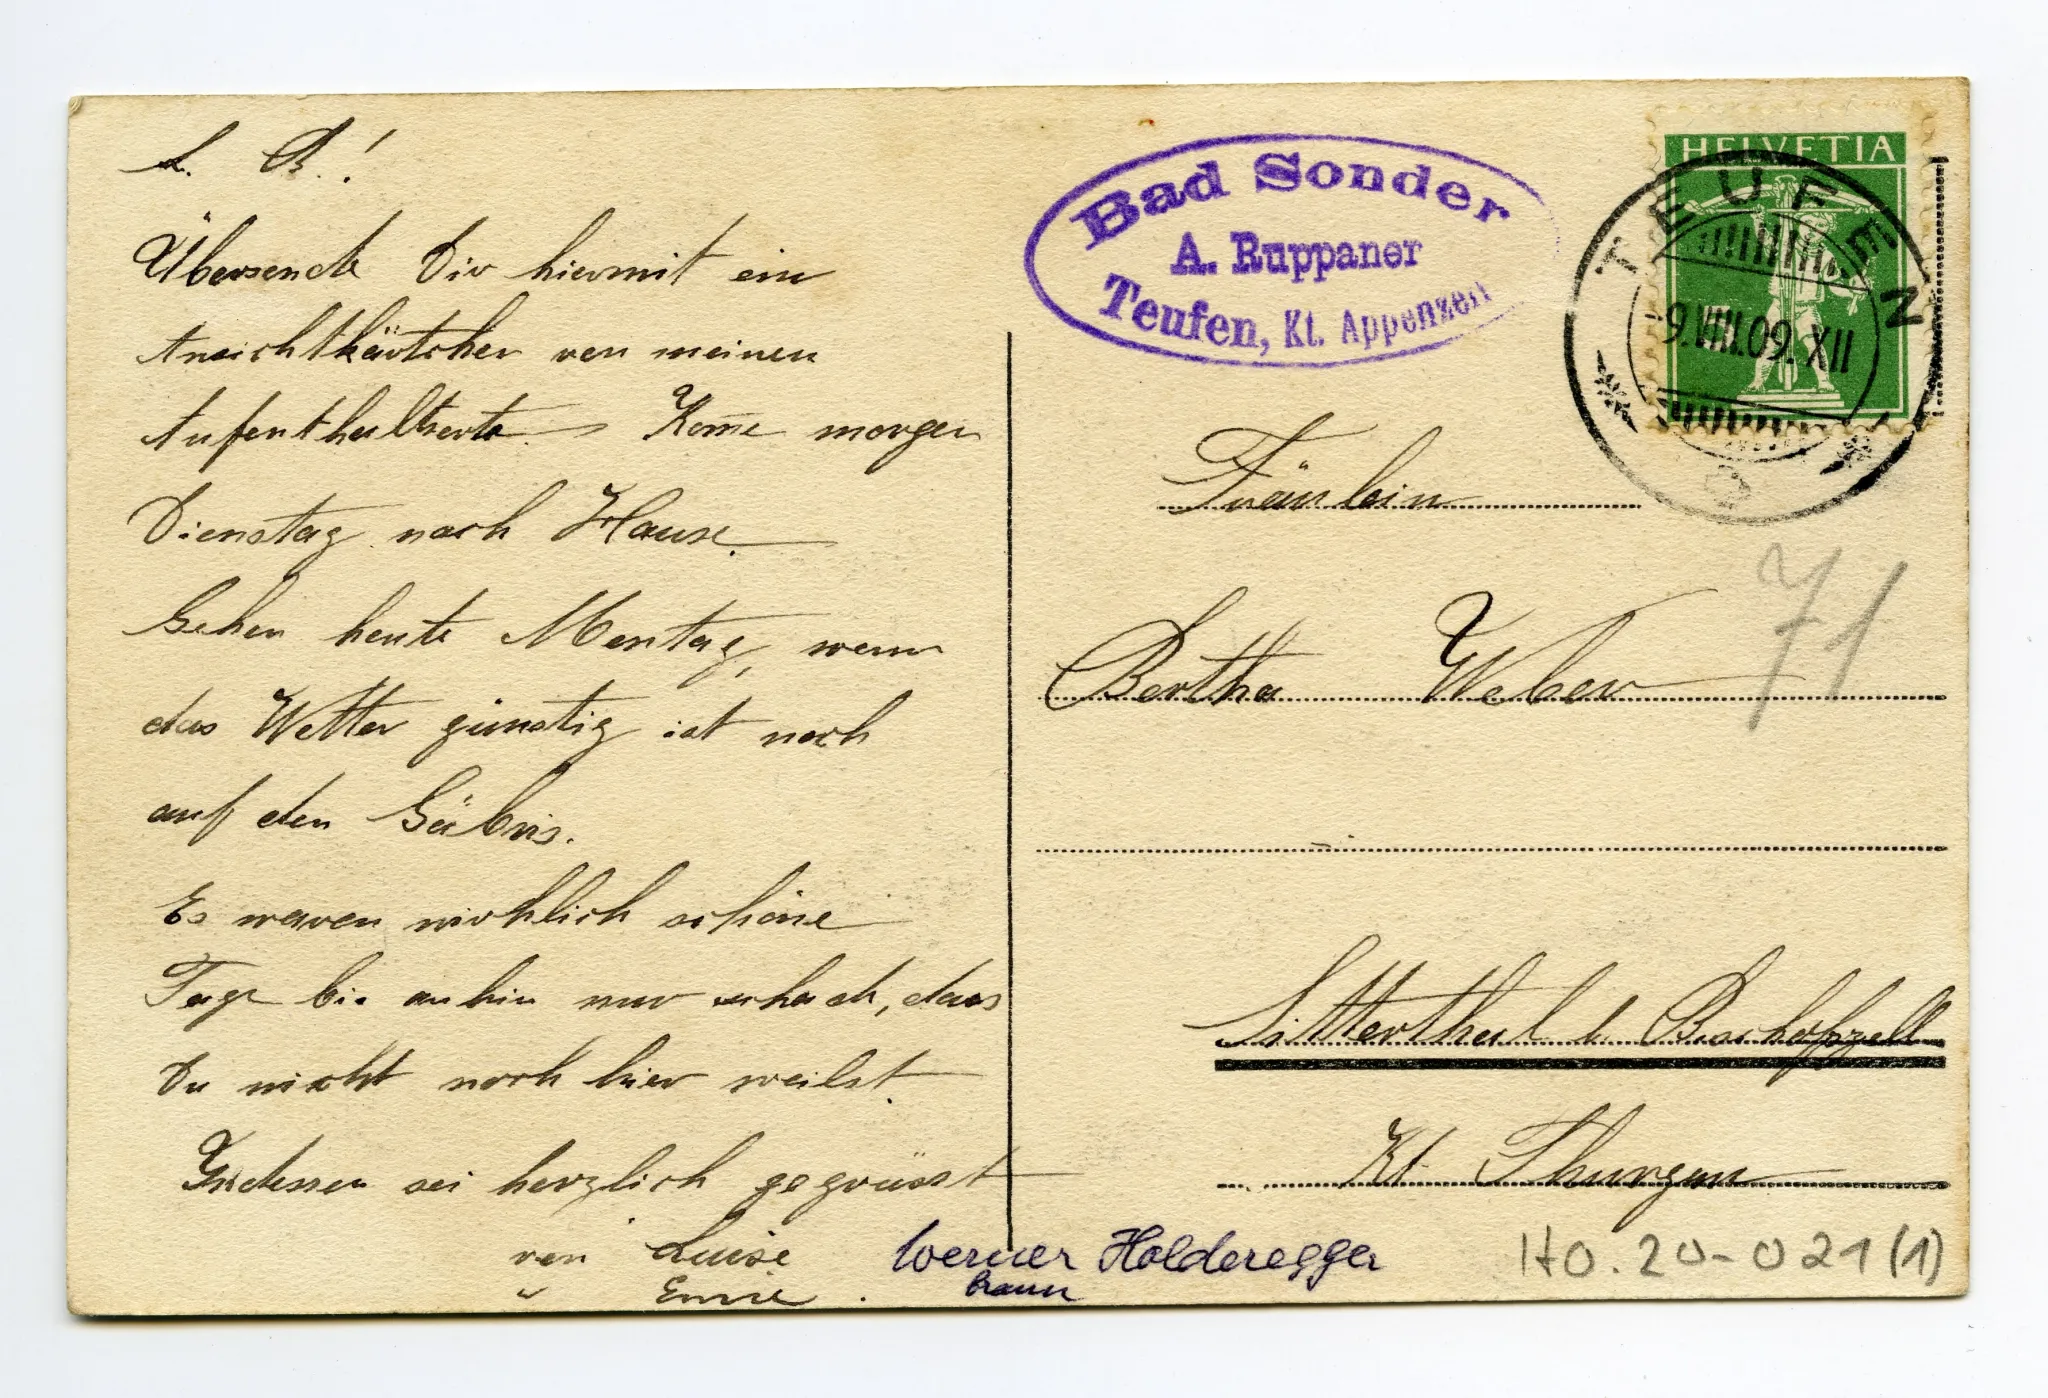 L. B.!
Übersende Dir hiermit ein
Ansichtkärtchen von meinen
Aufenthaltsorte. Kom̅e morgen
Dienstag nach Hause.
Gehen heute Montag, wenn
das Wetter günstig ist noch
auf den Gäbris.
Es waren wirklich schöne
Tage bis anhin nur schade, dass
Du nicht noch hier weilst.
Indessen sei herzlich gegrüsst
von Luise
" Emie
Werner Holderegger
braun
Bad Sonder
A. Ruppaner
Teufen, Kt. Appenzell
HELVETIA
TEUFEN
9.VIII.09. XII
Fräulein
Bertha Weber
71
Sitterthal b. Bischofszell
Kt. Thurgau
HO.20-021(1)